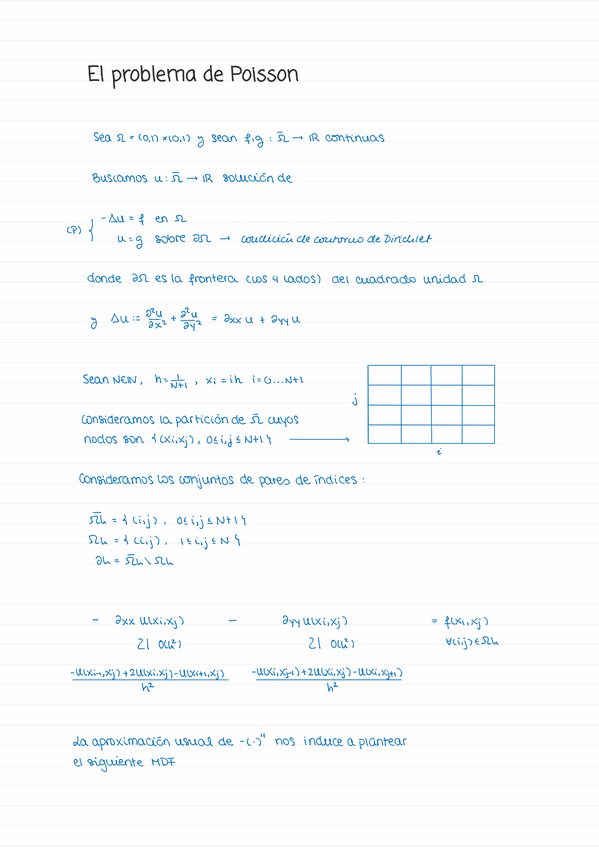 El problema de Poisson
Sea Ω = (0,1) × (0,1) y sean f,g : Ω̅ → ℝ continuas
Buscamos u : Ω̅ → ℝ solución de
(P) { -Δu = f en Ω
u = g sobre ∂Ω → condición de contorno de Dirichlet
donde ∂Ω es la frontera (los 4 lados) del cuadrado unidad Ω
y Δu := ∂²u/∂x² + ∂²u/∂y² = ∂xx u + ∂yy u
Sean N∈ℕ, h = 1/(N+1), xi = ih i=0...N+1
j
Consideramos la partición de Ω̅ cuyos
nodos son {(xi,xj), 0≤i,j≤N+1} →
i
Consideramos los conjuntos de pares de índices :
Ω̅h = {(i,j), 0≤i,j≤N+1}
Ωh = {(i,j), 1≤i,j≤N}
∂h = Ω̅h \ Ωh
- ∂xx u(xi,xj) - ∂yy u(xi,xj) = f(xi,xj)
≀| O(h²) ≀| O(h²) ∀(i,j)∈Ωh
-u(xi-1,xj)+2u(xi,xj)-u(xi+1,xj) / h² -u(xi,xj-1)+2u(xi,xj)-u(xi,xj+1) / h²
La aproximación usual de -(·)'' nos induce a plantear
el siguiente MDF